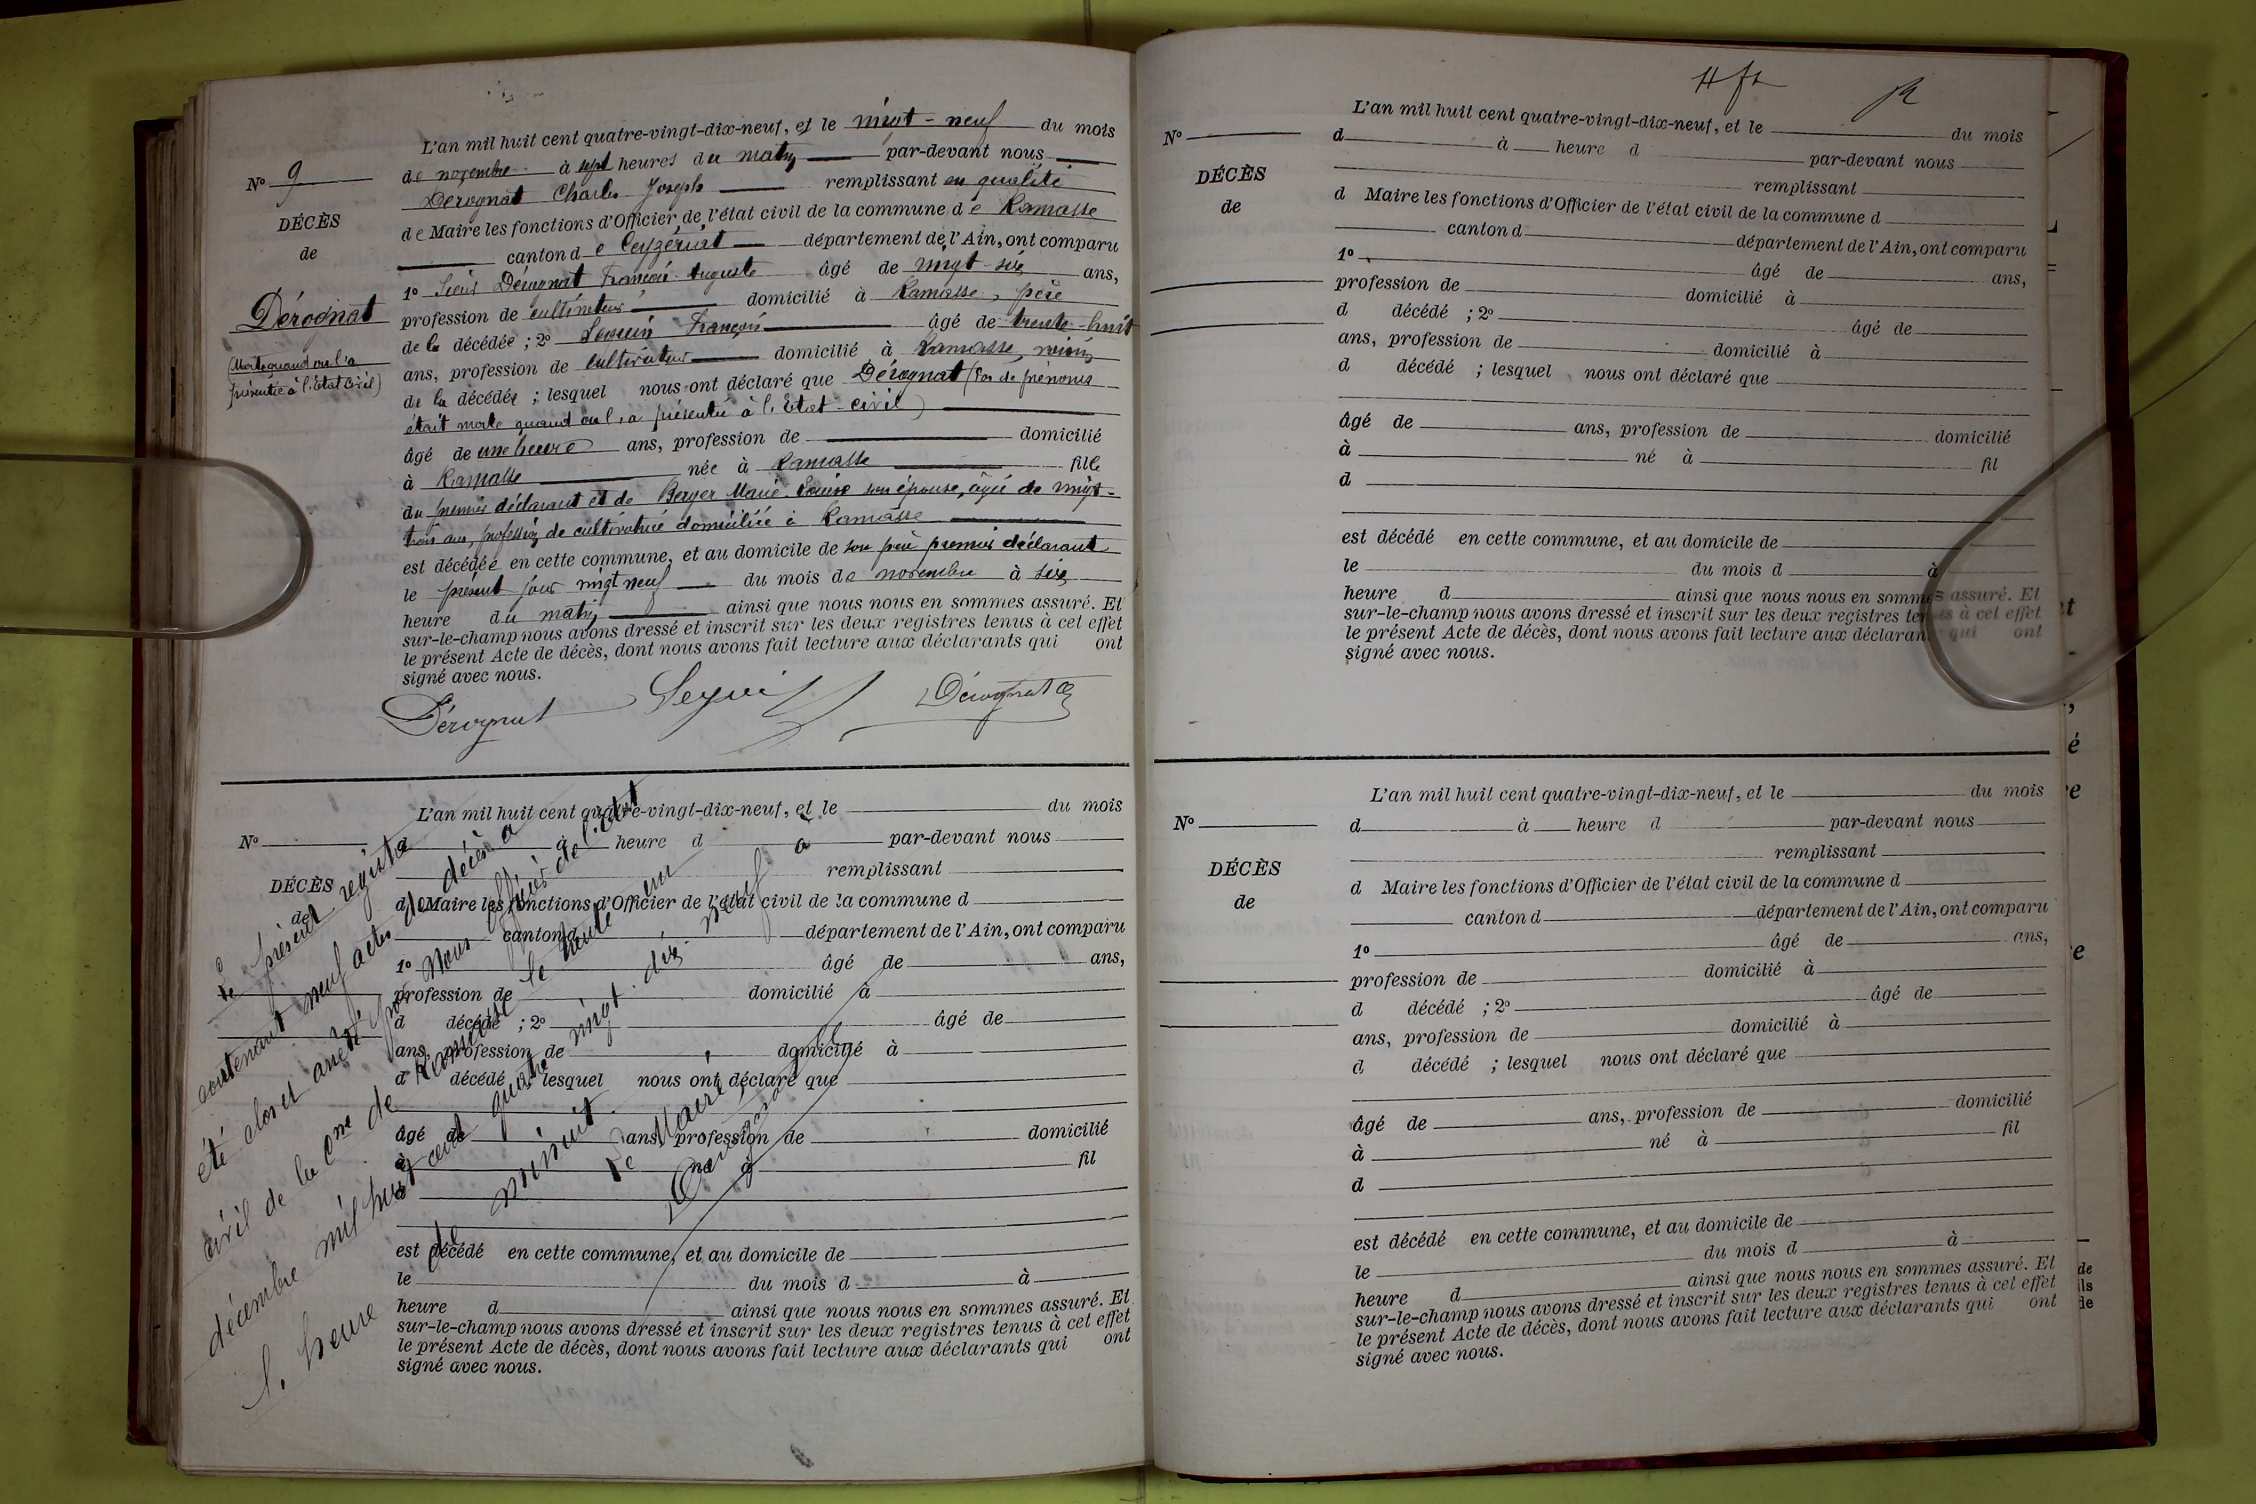 N° 9
DÉCÈS
de
Dérognat
(Morte quand on l'a
présentée à l'Etat Civil)
L'an mil huit cent quatre-vingt-dix-neuf, et le vingt-neuf du mois
de novembre à sept heures du matin par-devant nous
Dérognat Charles Joseph remplissant en qualité
de Maire les fonctions d'Officier de l'état civil de la commune de Ramasse
canton de Ceyzériat département de l'Ain, ont comparu
1° Sieur Dérognat François Auguste âgé de vingt-six ans,
profession de cultivateur domicilié à Ramasse, père
de la décédée ; 2° Seguin François âgé de trente-huit
ans, profession de cultivateur domicilié à Ramasse, voisin
de la décédée ; lesquel nous ont déclaré que Dérognat (Pas de prénoms
était morte quand on l'a présentée à l'Etat-civil)
âgé de une heure ans, profession de domicilié
à Ramasse née à Ramasse fille
du premier déclarant et de Berger Marie Louise son épouse, âgée de vingt-
trois ans, profession de cultivatrice domiciliée à Ramasse
est décédée en cette commune, et au domicile de son père premier déclarant
le présent jour vingt neuf du mois de novembre à six
heure du matin ainsi que nous nous en sommes assuré. Et
sur-le-champ nous avons dressé et inscrit sur les deux registres tenus à cet effet
le présent Acte de décès, dont nous avons fait lecture aux déclarants qui ont
signé avec nous.
Dérognat Seguin Dérognat
N°
DÉCÈS
de
L'an mil huit cent quatre-vingt-dix-neuf, et le du mois
d à heure d par-devant nous
remplissant
d Maire les fonctions d'Officier de l'état civil de la commune d
canton d département de l'Ain, ont comparu
1° âgé de ans,
profession de domicilié à
d décédé ; 2° âgé de
ans, profession de domicilié à
d décédé ; lesquel nous ont déclaré que
âgé de ans, profession de domicilié
à né à fil
d
est décédé en cette commune, et au domicile de
le du mois d à
heure d ainsi que nous nous en sommes assuré. Et
sur-le-champ nous avons dressé et inscrit sur les deux registres tenus à cet effet
le présent Acte de décès, dont nous avons fait lecture aux déclarants qui ont
signé avec nous.
Le présent registre
contenant neuf actes de décès a
été clos et arrêté par Nous officier de l'état
civil de la Cne de Ramasse le trente un
décembre mil huit cent quatre vingt-dix-neuf à
l'heure de minuit
Le Maire
Dérognat
N°
DÉCÈS
de
L'an mil huit cent quatre-vingt-dix-neuf, et le du mois
d à heure d par-devant nous
remplissant
d Maire les fonctions d'Officier de l'état civil de la commune d
canton d département de l'Ain, ont comparu
1° âgé de ans,
profession de domicilié à
d décédé ; 2° âgé de
ans, profession de domicilié à
d décédé ; lesquel nous ont déclaré que
âgé de ans, profession de domicilié
à né à fil
d
est décédé en cette commune, et au domicile de
le du mois d à
heure d ainsi que nous nous en sommes assuré. Et
sur-le-champ nous avons dressé et inscrit sur les deux registres tenus à cet effet
le présent Acte de décès, dont nous avons fait lecture aux déclarants qui ont
signé avec nous.
N°
DÉCÈS
de
L'an mil huit cent quatre-vingt-dix-neuf, et le du mois
d à heure d par-devant nous
remplissant
d Maire les fonctions d'Officier de l'état civil de la commune d
canton d département de l'Ain, ont comparu
1° âgé de ans,
profession de domicilié à
d décédé ; 2° âgé de
ans, profession de domicilié à
d décédé ; lesquel nous ont déclaré que
âgé de ans, profession de domicilié
à né à fil
d
est décédé en cette commune, et au domicile de
le du mois d à
heure d ainsi que nous nous en sommes assuré. Et
sur-le-champ nous avons dressé et inscrit sur les deux registres tenus à cet effet
le présent Acte de décès, dont nous avons fait lecture aux déclarants qui ont
signé avec nous.